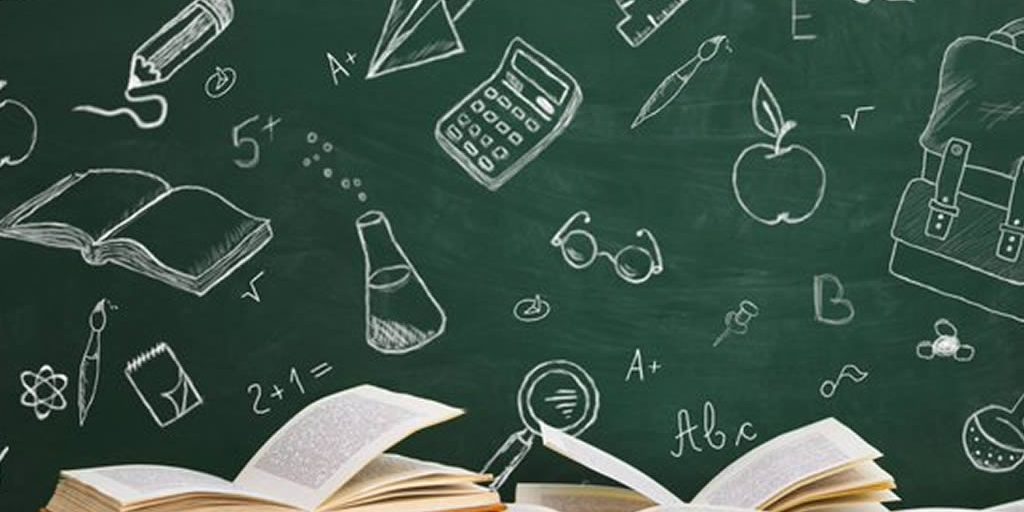 E
A+
5+
√
√
B
2+1=
A+
Abc